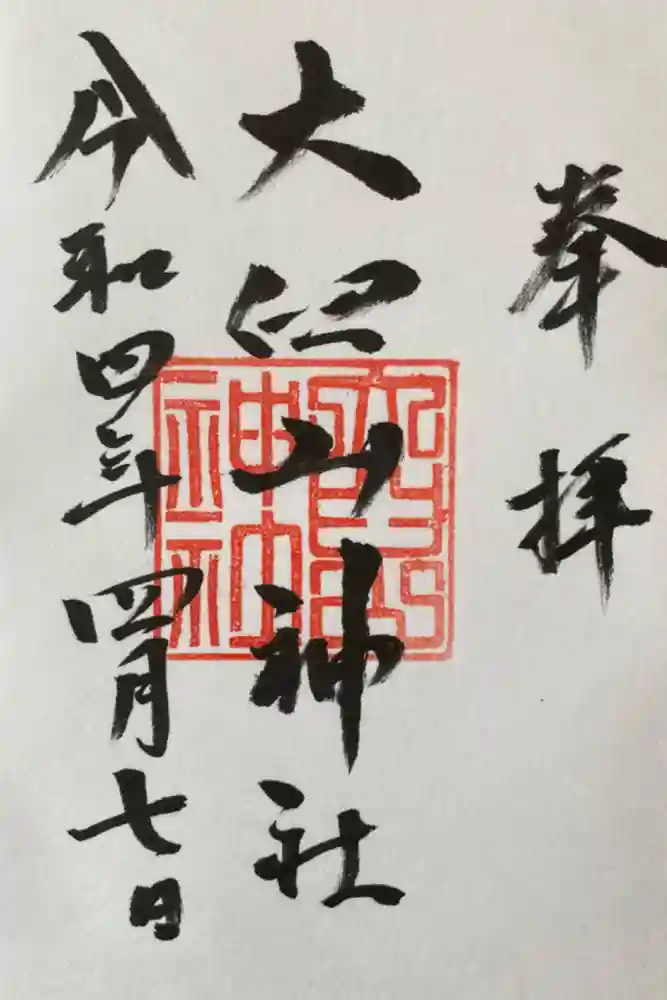 奉拝
大臼山神社
令和四年四月七日